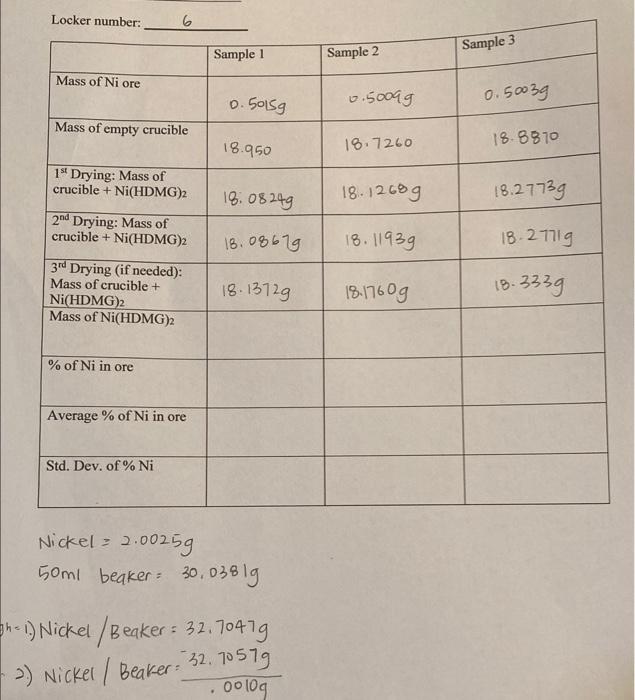 Locker number: 6
Sample 1 Sample 2 Sample 3
Mass of Ni ore 0.5015g 0.5009g 0.5003g
Mass of empty crucible 18.950 18.7260 18.8870
1st Drying: Mass of
crucible + Ni(HDMG)2 18.0824g 18.1268g 18.2773g
2nd Drying: Mass of
crucible + Ni(HDMG)2 18.0867g 18.1193g 18.2771g
3rd Drying (if needed):
Mass of crucible +
Ni(HDMG)2 18.1372g 18.1760g 18.333g
Mass of Ni(HDMG)2
% of Ni in ore
Average % of Ni in ore
Std. Dev. of % Ni
Nickel = 2.0025g
50ml beaker = 30.0381g
1.) Nickel / Beaker = 32.7047g
2) Nickel / Beaker = -32.7057g
.0010g